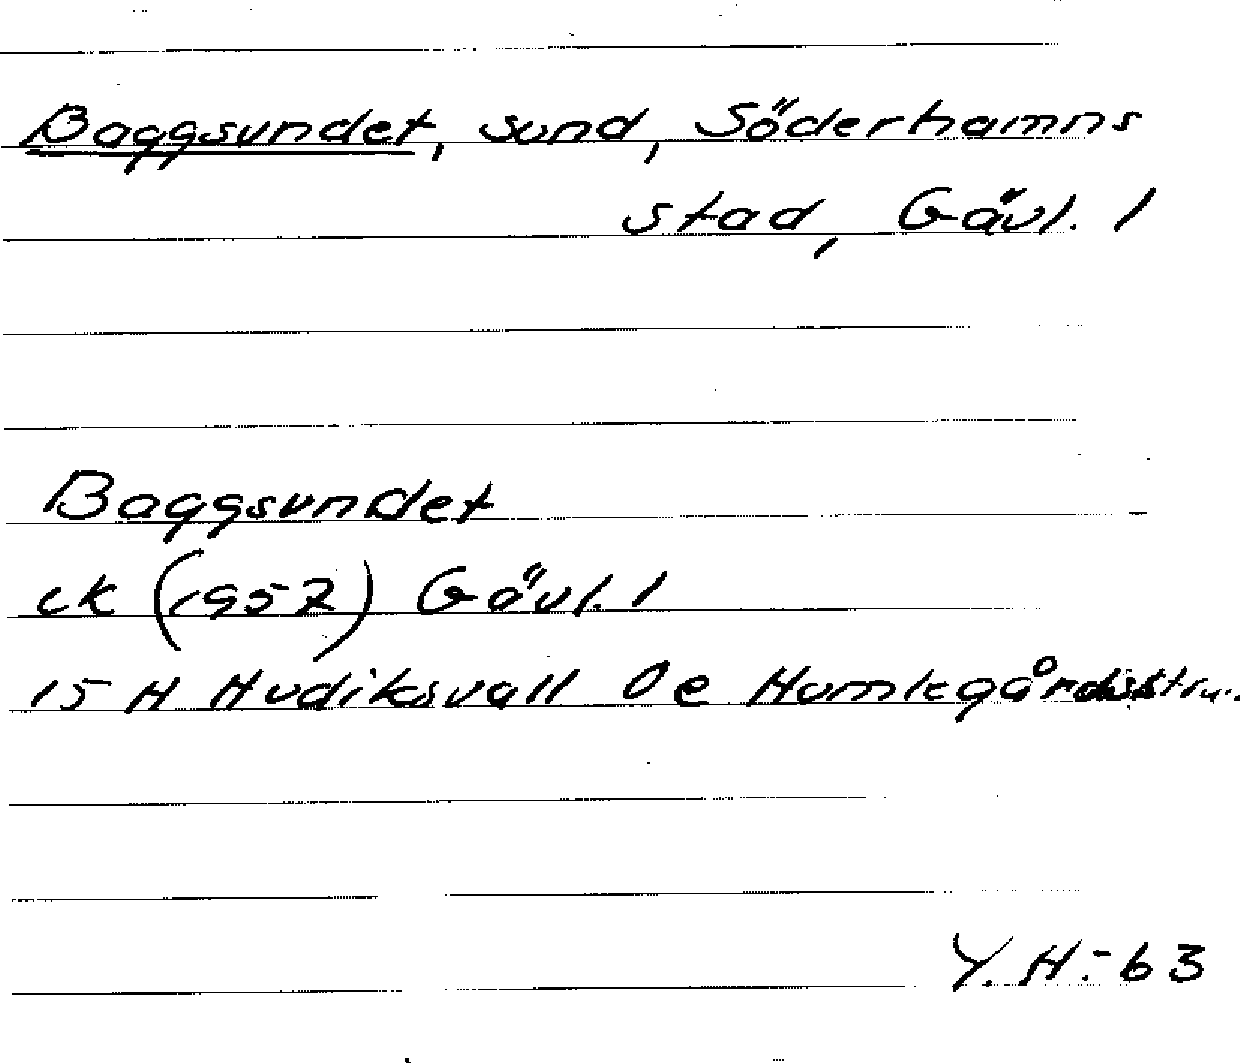 Baggsundet, sund, Söderhamns
stad, Gävl. l
Baggsundet
ek (1957) Gävl. l
15 H Hudiksvall 0 e
Y.H.-63